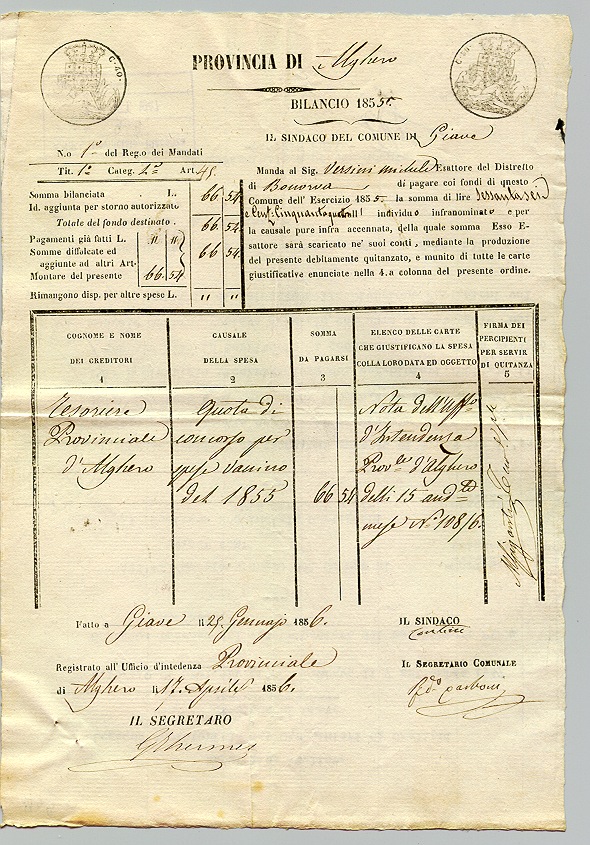 C. 40.
PROVINCIA DI Alghero
BILANCIO 1855
IL SINDACO DEL COMUNE DI Giave
N.o 1º del Reg.o dei Mandati
Tit. 1º Categ. 2ª Art. 45.
Somma bilanciata L. 66 54
Id. aggiunta per storno autorizzato
Totale del fondo destinato. 66 54
Pagamenti già fatti L. " "
Somme diffalcate ed 66 54
aggiunte ad altri Art.
Montare del presente 66. 54
Rimangono disp. per altre spese L. " "
Manda al Sig. Esattore del Distretto
di Bonorva di pagare coi fondi di questo
Comune dell' Esercizio 1855. la somma di lire Sessantasei
e Cent. Cinquantaquattro all individuo infranominato e per
la causale pure infra accennata, della quale somma Esso E-
sattore sarà scaricato ne' suoi conti, mediante la produzione
del presente debitamente quitanzato, e munito di tutte le carte
giustificative enunciate nella 4.a colonna del presente ordine.
COGNOME E NOME
DEI CREDITORI
1
CAUSALE
DELLA SPESA
2
SOMMA
DA PAGARSI
3
ELENCO DELLE CARTE
CHE GIUSTIFICANO LA SPESA
COLLA LORO DATA ED OGGETTO
4
FIRMA DEI
PERCIPIENTI
PER SERVIR
DI QUITANZA
5
Tesoriere
Provinciale
d'Alghero
Quota di
concorso per
spese
del 1855
66 54
Nota dell'Uff.º
d'Intendenza
Prov.le d'Alghero
delli 15 and.te
mese Nº 108/6.
Fatto a Giave li 25. Gennajo 1856.
IL SINDACO
Registrato all' Ufficio d'intedenza Provinciale
di Alghero li 17. Aprile 1856.
IL SEGRETARIO COMUNALE
IL SEGRETARO